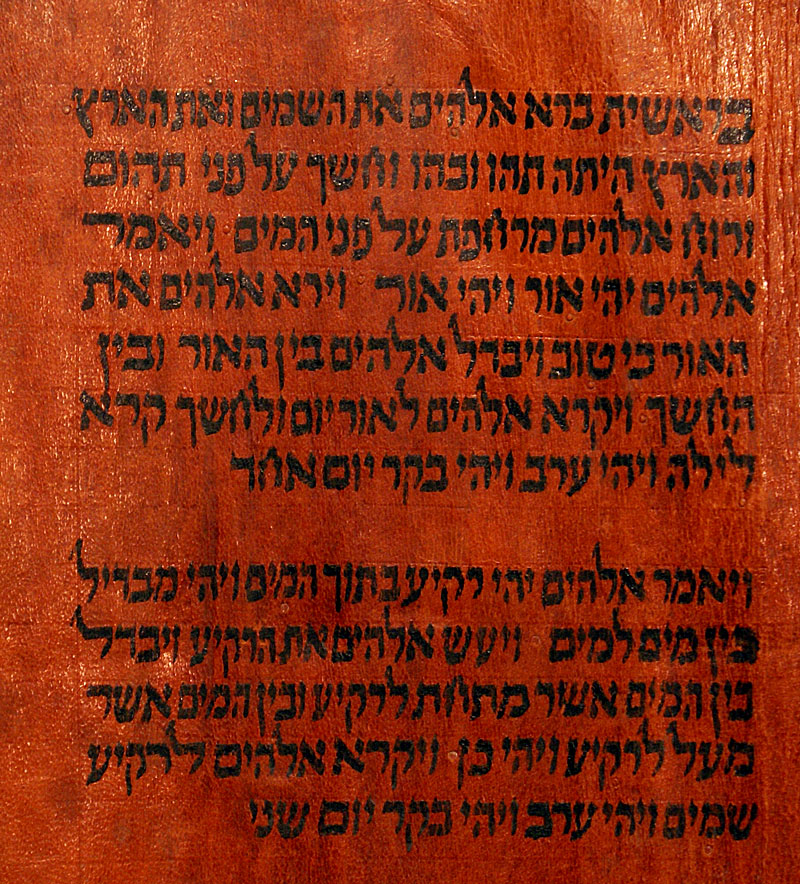 בראשית ברא אלהים את השמים ואת הארץ
והארץ היתה תהו ובהו וחשך על פני תהום
ורוח אלהים מרחפת על פני המים ויאמר
אלהים יהי אור ויהי אור וירא אלהים את
האור כי טוב ויבדל אלהים בין האור ובין
החשך ויקרא אלהים לאור יום ולחשך קרא
לילה ויהי ערב ויהי בקר יום אחד
ויאמר אלהים יהי רקיע בתוך המים ויהי מבדיל
בין מים למים ויעש אלהים את הרקיע ויבדל
בין המים אשר מתחת לרקיע ובין המים אשר
מעל לרקיע ויהי כן ויקרא אלהים לרקיע
שמים ויהי ערב ויהי בקר יום שני